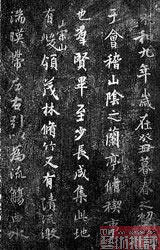 永和九年歲在癸丑暮春之初會
于會稽山陰之蘭亭脩禊事
也羣賢畢至少長咸集此地
有崇山峻領茂林脩竹又有清流激
湍暎帶左右引以為流觴曲水